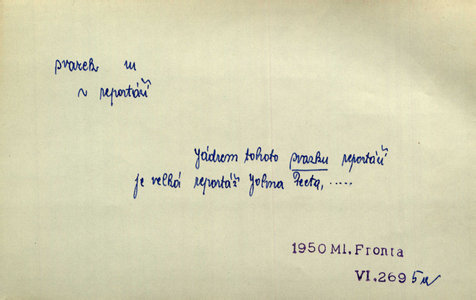 svazek m
v reportáží
Jádrem tohoto svazku reportáží
je velká reportáž Johna Reeta, .....
1950 Ml. Fronta
VI. 269